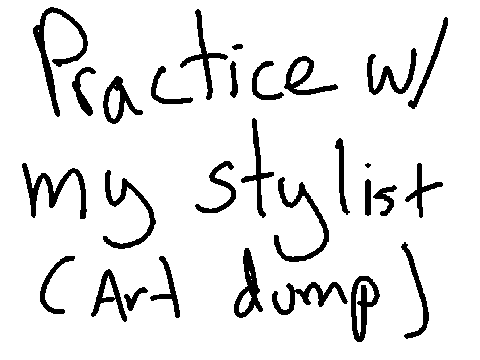 Practice w/
my stylist
(Art dump)